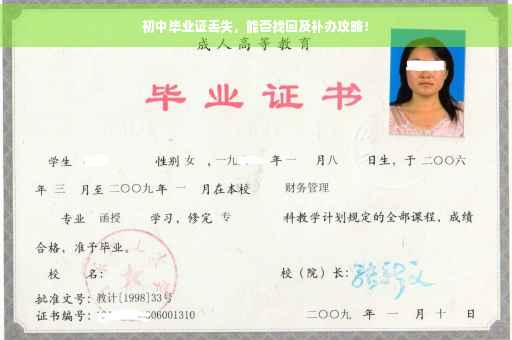 初中毕业证丢失，能否找回及补办攻略！
成人高等教育
毕业证书
学生 性别 女 ，一九 年 一 月八 日生，于 二〇〇六
年 三 月至 二〇〇九 年 一 月在本校 财务管理
专业 函授 学习，修完 专 科教学计划规定的全部课程，成绩
合格，准予毕业。
校 名： 校（院）长：
批准文号：教计[1998]33号
证书编号： 06001310 二〇〇九 年 一 月 十 日